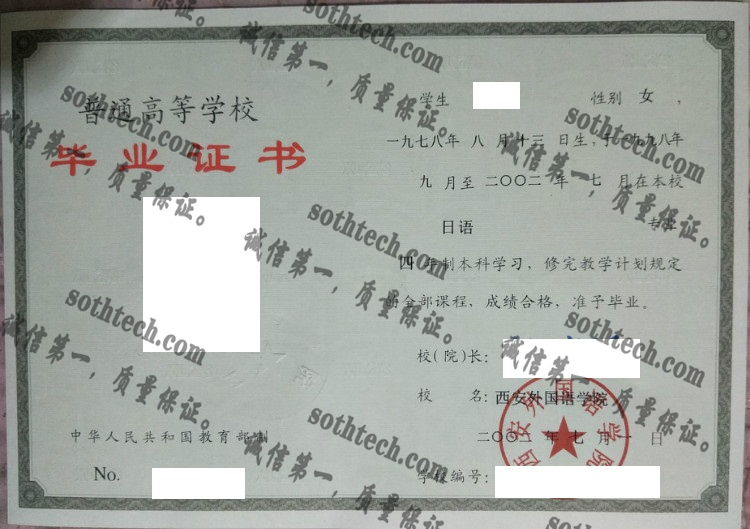 普通高等学校
毕业证书
中华人民共和国教育部制
No.
学生 性别 女,
一九七八年 八 月 十三 日生, 于一九九八年
九 月至 二〇〇二 年 七 月在本校
日语 专业
四 年制本科学习, 修完教学计划规定
的全部课程, 成绩合格, 准予毕业。
校(院)长:
校 名: 西安外国语学院
二〇〇二 年 七 月 一 日
学校编号:
西安外国语学院
sothtech.com
诚信第一, 质量保证。
sothtech.com
诚信第一, 质量保证。
sothtech.com
诚信第一, 质量保证。
sothtech.com
诚信第一, 质量保证。
sothtech.com
诚信第一, 质量保证。
sothtech.com
诚信第一, 质量保证。
sothtech.com
诚信第一, 质量保证。